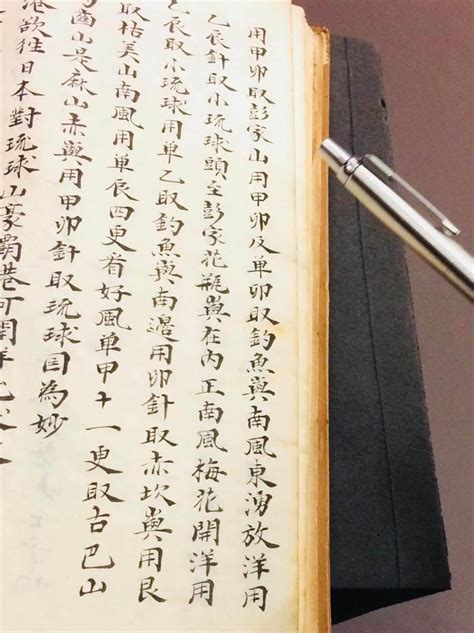 用甲卯取彭家山用甲卯及单卯取釣魚嶼南風東湧放洋用
乙辰針取小琉球頭至彭家花瓶嶼在内正南風梅花開洋用
乙辰取小琉球用单乙取釣魚嶼南邊用卯針取赤坎嶼用艮
取枯美山南風用单辰四更看好風单甲十一更取古巴山
齒山是麻山赤嶼用甲卯針取琉球国為妙
港欲往日本對琉球山豪霸港可開洋